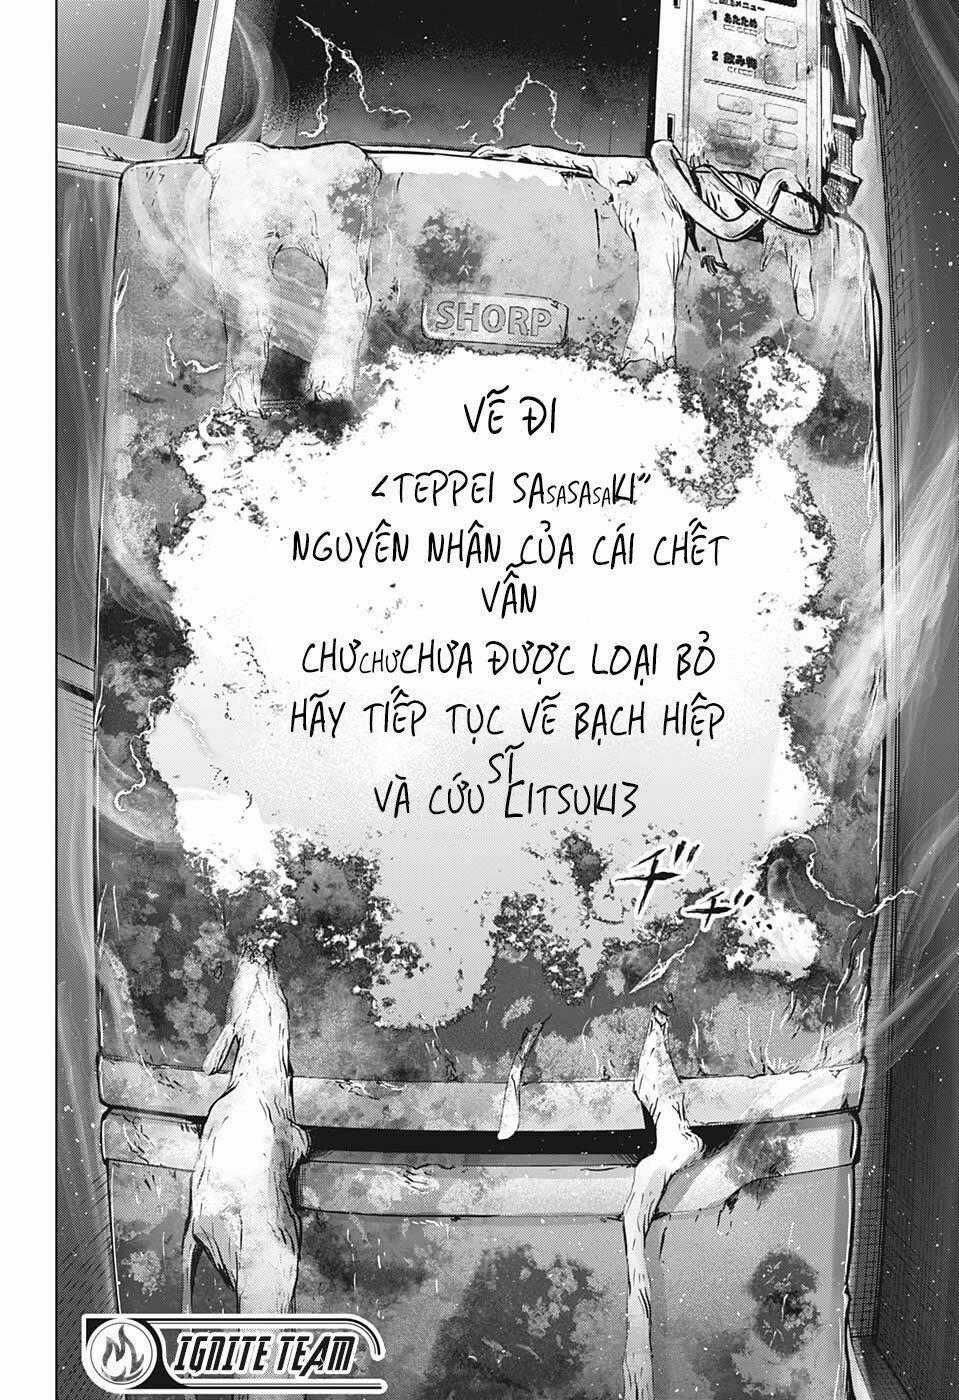 メニュー
1 あたため
2 飲み物
SHORP
VẼ ĐI
<TEPPEI SASASASAKI"
NGUYÊN NHÂN CỦA CÁI CHẾT
VẪN
CHƯCHƯCHƯA ĐƯỢC LOẠI BỎ
HÃY TIẾP TỤC VẼ BẠCH HIỆP
SĨ
VÀ CỨU [ITSUKI3
ヂッ
ヂヂ...
IGNITE TEAM